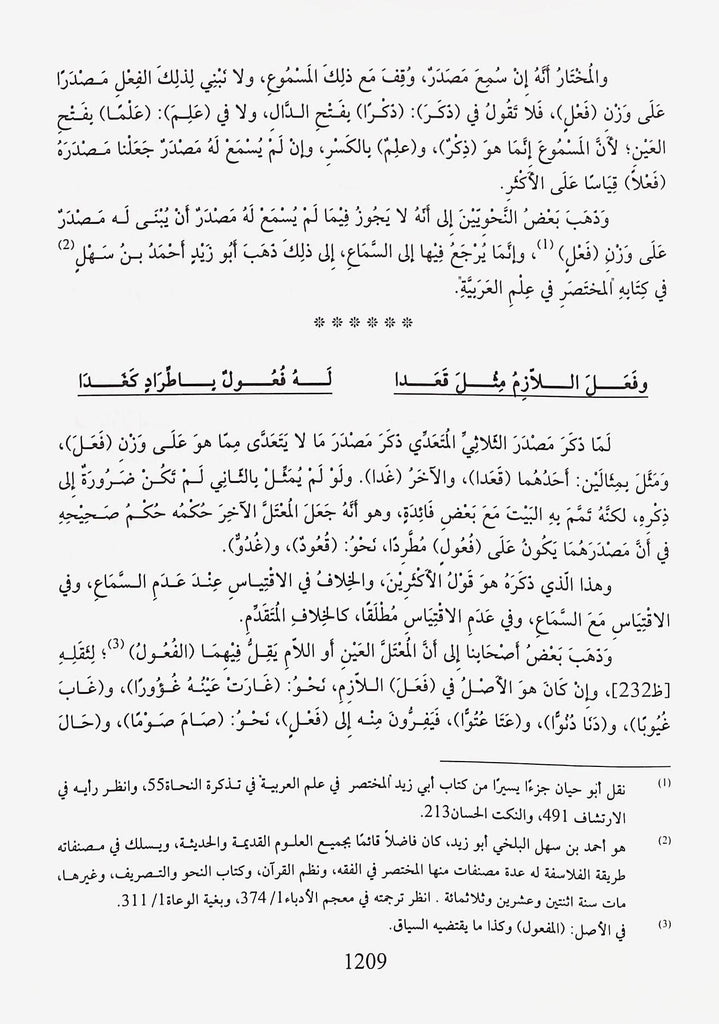 والمُخْتَارُ أَنَّهُ إِنْ سُمِعَ مَصْدَرٌ، وُقِفَ مَع ذلِكَ المَسْمُوعِ، ولا نَبْنِي لِذلِكَ الفِعْلِ مَـصْدَرًا
عَلَى وَزْنِ (فَعْلٍ)، فَلا تَقُولُ في (ذَكَرَ): (ذَكْرًا) بِفَتْحِ الـدَّالِ، ولا في (عَلِمَ): (عَلْمًا) بِفَتْحِ
العَيْنِ؛ لأَنَّ المَسْمُوعَ إِنَّمَا هوَ (ذِكْرٌ)، و(عِلمٌ) بِالكَسْرِ، وإنْ لَمْ يُسْمَعْ لَهُ مَصْدَرٌ جَعَلْنا مَـصْدَرَهُ
(فَعْلاً) قِيَاسًا عَلَى الأَكْثَرِ.
وَذَهَبَ بَعْضُ النَّحْوِيِّيْنَ إلى أنَّهُ لا يَجُوزُ فِيْمَا لَمْ يُسْمَعْ لَهُ مَصْدَرٌ أَنْ يُبْنَـى لَـه مَـصْدَرٌ
عَلَى وَزْنِ (فَعْلٍ) (1)، وإنَّمَا يُرْجَعُ فِيْها إلى السَّمَاعِ، إلى ذلِكَ ذَهَبَ أَبُو زَيْدٍ أَحْمَدُ بـنُ سَـهْلٍ (2)
في كِتَابهِ "المختَصَرِ في عِلْمِ العَرَبِيَّةِ".
* * * * * *
وفَعَـلَ الـلاَّزِمُ مِثْـلَ قَعَـدا لَـهُ فُعُـولٌ بـاطِّرَادٍ كَغَـدَا
لَمَّا ذَكَرَ مَصْدَرَ الثُّلاثِيِّ المُتَعَدِّي ذكَرَ مَصْدَرَ مَا لا يَتَعَدَّى مِمَّا هوَ عَلَـى وَزْنِ (فَعَلَ)،
وَمَثَّلَ بِمِثَالَيْنِ: أَحَدُهُما (قَعَدا)، والآخَرُ (غَدا). ولَوْ لَمْ يُمَثِّلْ بِالثَّانِي لَـمْ تَكُـنْ ضَـرُورَةٌ إلى
ذِكْرِهِ، لكنَّهُ تَمَّمَ بِهِ البَيْتَ مَعَ بَعْضِ فَائِدَةٍ، وهو أنَّهُ جَعَلَ المُعْتَلَّ الآخِرَ حُكْمُه حُكْمُ صَـحِيْحِهِ
في أَنَّ مَصْدَرَهُمَا يَكُونُ عَلَى (فُعُولٍ) مُطَّرِدًا، نَحْوُ: (قُعُودٌ)، و(غُدُوٌّ).
وهذا الَّذي ذكَرَهُ هوَ قَوْلُ الأَكْثَرِيْنَ، والخِلافُ في الاقْتِيـاسِ عِنْـدَ عَـدَمِ الـسَّمَاعِ، وفي
الاقْتِيَاسِ مَعَ السَّمَاعِ، وفي عَدَمِ الاقْتِيَاسِ مُطْلَقًا، كالخِلافِ المُتَقَدِّمِ.
وَذَهَبَ بَعْضُ أَصْحَابِنا إلى أنَّ المُعْتَلَّ العَيْنِ أو اللاَّمِ يَقِـلُّ فِيْهِمَـا (الفُعُـولُ) (3)؛ لِثِقَلِـهِ
[ظ232]، وإنْ كَانَ هوَ الأَصْلُ في (فَعَلَ) الـلاَّزِمِ، نَحْوُ: (غَارَتْ عَيْنُهُ غُـؤُورًا)، و(غَـابَ
غُيُوبًا)، و(دَنَا دُنُوًّا)، و(عَتَا عُتُوًّا)، فَيَفِرُّونَ مِنْـه إلى (فَعْلٍ)، نَحْوُ: (صَامَ صَوْمًا)، و(حَـالَ
(1) نقل أبو حيان جزءًا يسيرًا من كتاب أبي زيد "المختصر في علم العربية" في تـذكرة النحـاة55، وانظـر رأيـه في
الارتشاف 491، والنكت الحسان213.
(2) هو أحمد بن سهل البلخي أبو زيد، كان فاضلاً قائمًا بجميع العلوم القديمة والحديثة، ويسلك في مـصنفاته
طريقة الفلاسفة له عدة مصنفات منها المختصر في الفقه، ونظم القرآن، وكتاب النحو والتـصريف، وغيرهـا،
مات سنة اثنتين وعشرين وثلاثمائة . انظر ترجمته في معجم الأدباء1/ 374، وبغية الوعاة1/ 311.
(3) في الأصل: (المفعول) وكذا ما يقتضيه السياق.
1209